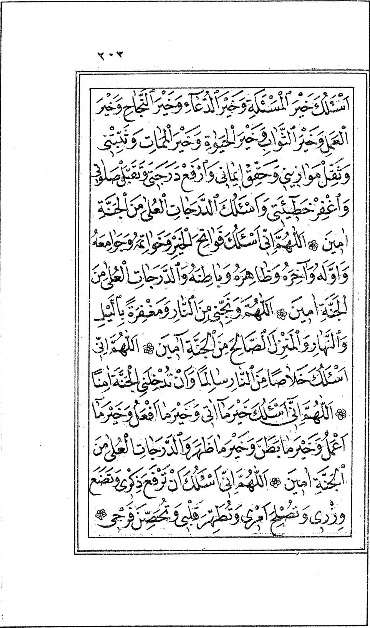 ٢٠٣
اَسْئَلُكَ خَيْرَ الْمَسْئَلَةِ وَخَيْرَ الدُّعَاۤءِ وَخَيْرَ النَّجَاحِ وَخَيْرَ
الْعَمَلِ وَخَيْرَ الثَّوَابِ وَخَيْرَ الْحَيٰوةِ وَخَيْرَ الْمَمَاتِ وَثَبِّتْنِى
وَثَقِّلْ مَوَازِينِى وَحَقِّقْ اِيمَانِى وَارْفَعْ دَرَجَتِى وَتَقَبَّلْ صَلٰوتِى
وَاغْفِرْ خَطِيئَتِى وَاَسْئَلُكَ الدَّرَجَاتِ الْعُلٰى مِنَ الْجَنَّةِ
اٰمِينَ ۞ اَللّٰهُمَّ اِنِّى اَسْئَلُكَ فَوَاتِحَ الْخَيْرِ وَخَوَاتِمَهُ وَجَوَامِعَهُ
وَاَوَّلَهُ وَاٰخِرَهُ وَظَاهِرَهُ وَبَاطِنَهُ وَالدَّرَجَاتِ الْعُلٰى مِنَ
الْجَنَّةِ اٰمِينَ ۞ اَللّٰهُمَّ وَنَجِّنِى مِنَ النَّارِ وَمَغْفِرَةً بِالَّيْلِ
وَالنَّهَارِ وَالْمَنْزِلَ الصَّالِحَ مِنَ الْجَنَّةِ اٰمِينَ ۞ اَللّٰهُمَّ اِنِّى
اَسْئَلُكَ خَلَاصًا مِنَ النَّارِ سَالِمًا وَاَنْ تُدْخِلَنِى الْجَنَّةَ اٰمِنًا
۞ اَللّٰهُمَّ اِنِّى اَسْئَلُكَ خَيْرَ مَا اٰتِى وَخَيْرَ مَا اَفْعَلُ وَخَيْرَ مَا
اَعْمَلُ وَخَيْرَ مَا بَطَنَ وَخَيْرَ مَا ظَهَرَ وَالدَّرَجَاتِ الْعُلٰى مِنَ
الْجَنَّةِ اٰمِينَ ۞ اَللّٰهُمَّ اِنِّى اَسْئَلُكَ اَنْ تَرْفَعَ ذِكْرِى وَتَضَعَ
وِزْرِى وَتُصْلِحَ اَمْرِى وَتُطَهِّرَ قَلْبِى وَتُحَصِّنَ فَرْجِى ۞